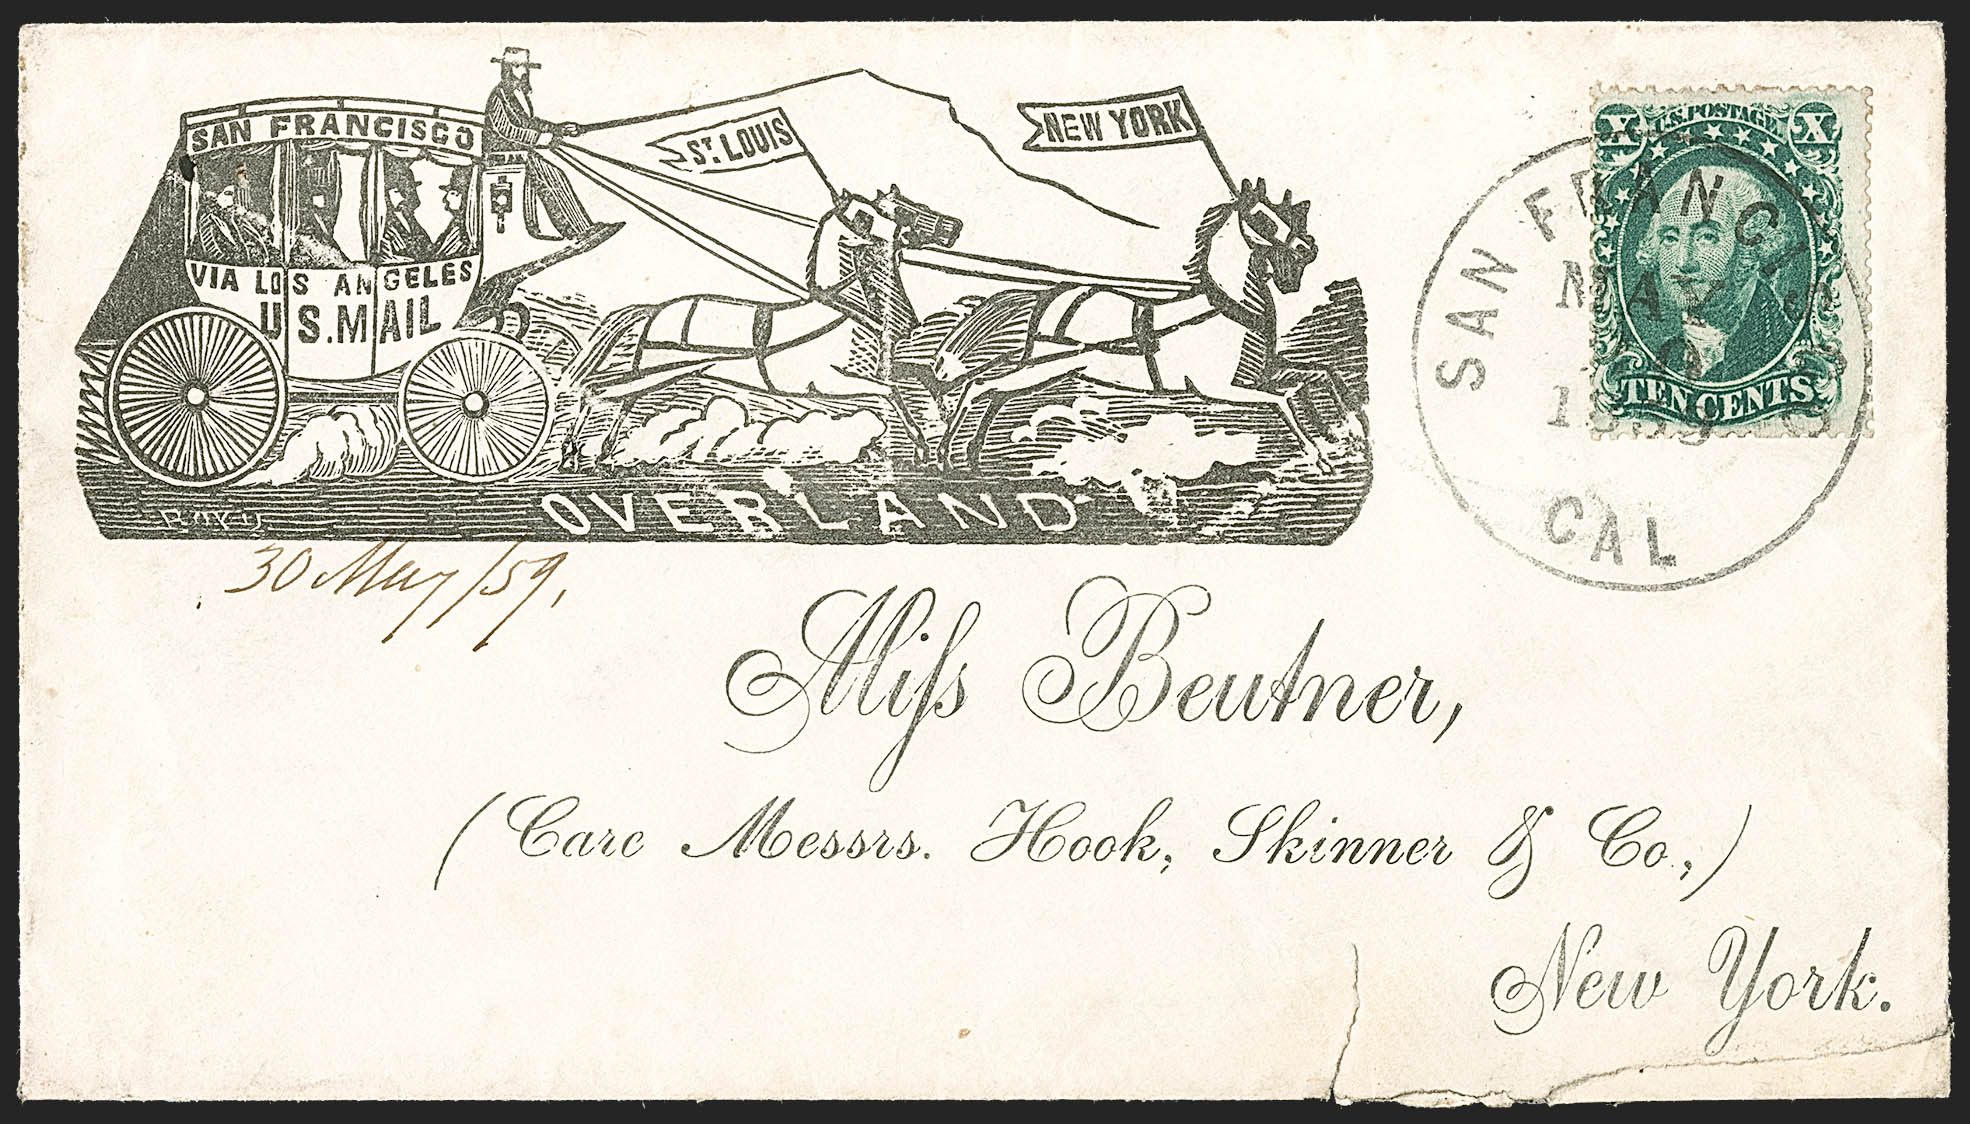 SAN FRANCISCO
ST. LOUIS
NEW YORK
VIA LOS ANGELES
U.S. MAIL
OVERLAND
30 May/59,
U.S. POSTAGE
X X
TEN CENTS
SAN FRANCISCO
MAY
1859
CAL
Miſs Beutner,
(Care Messrs. Hook, Skinner & Co.,)
New York.